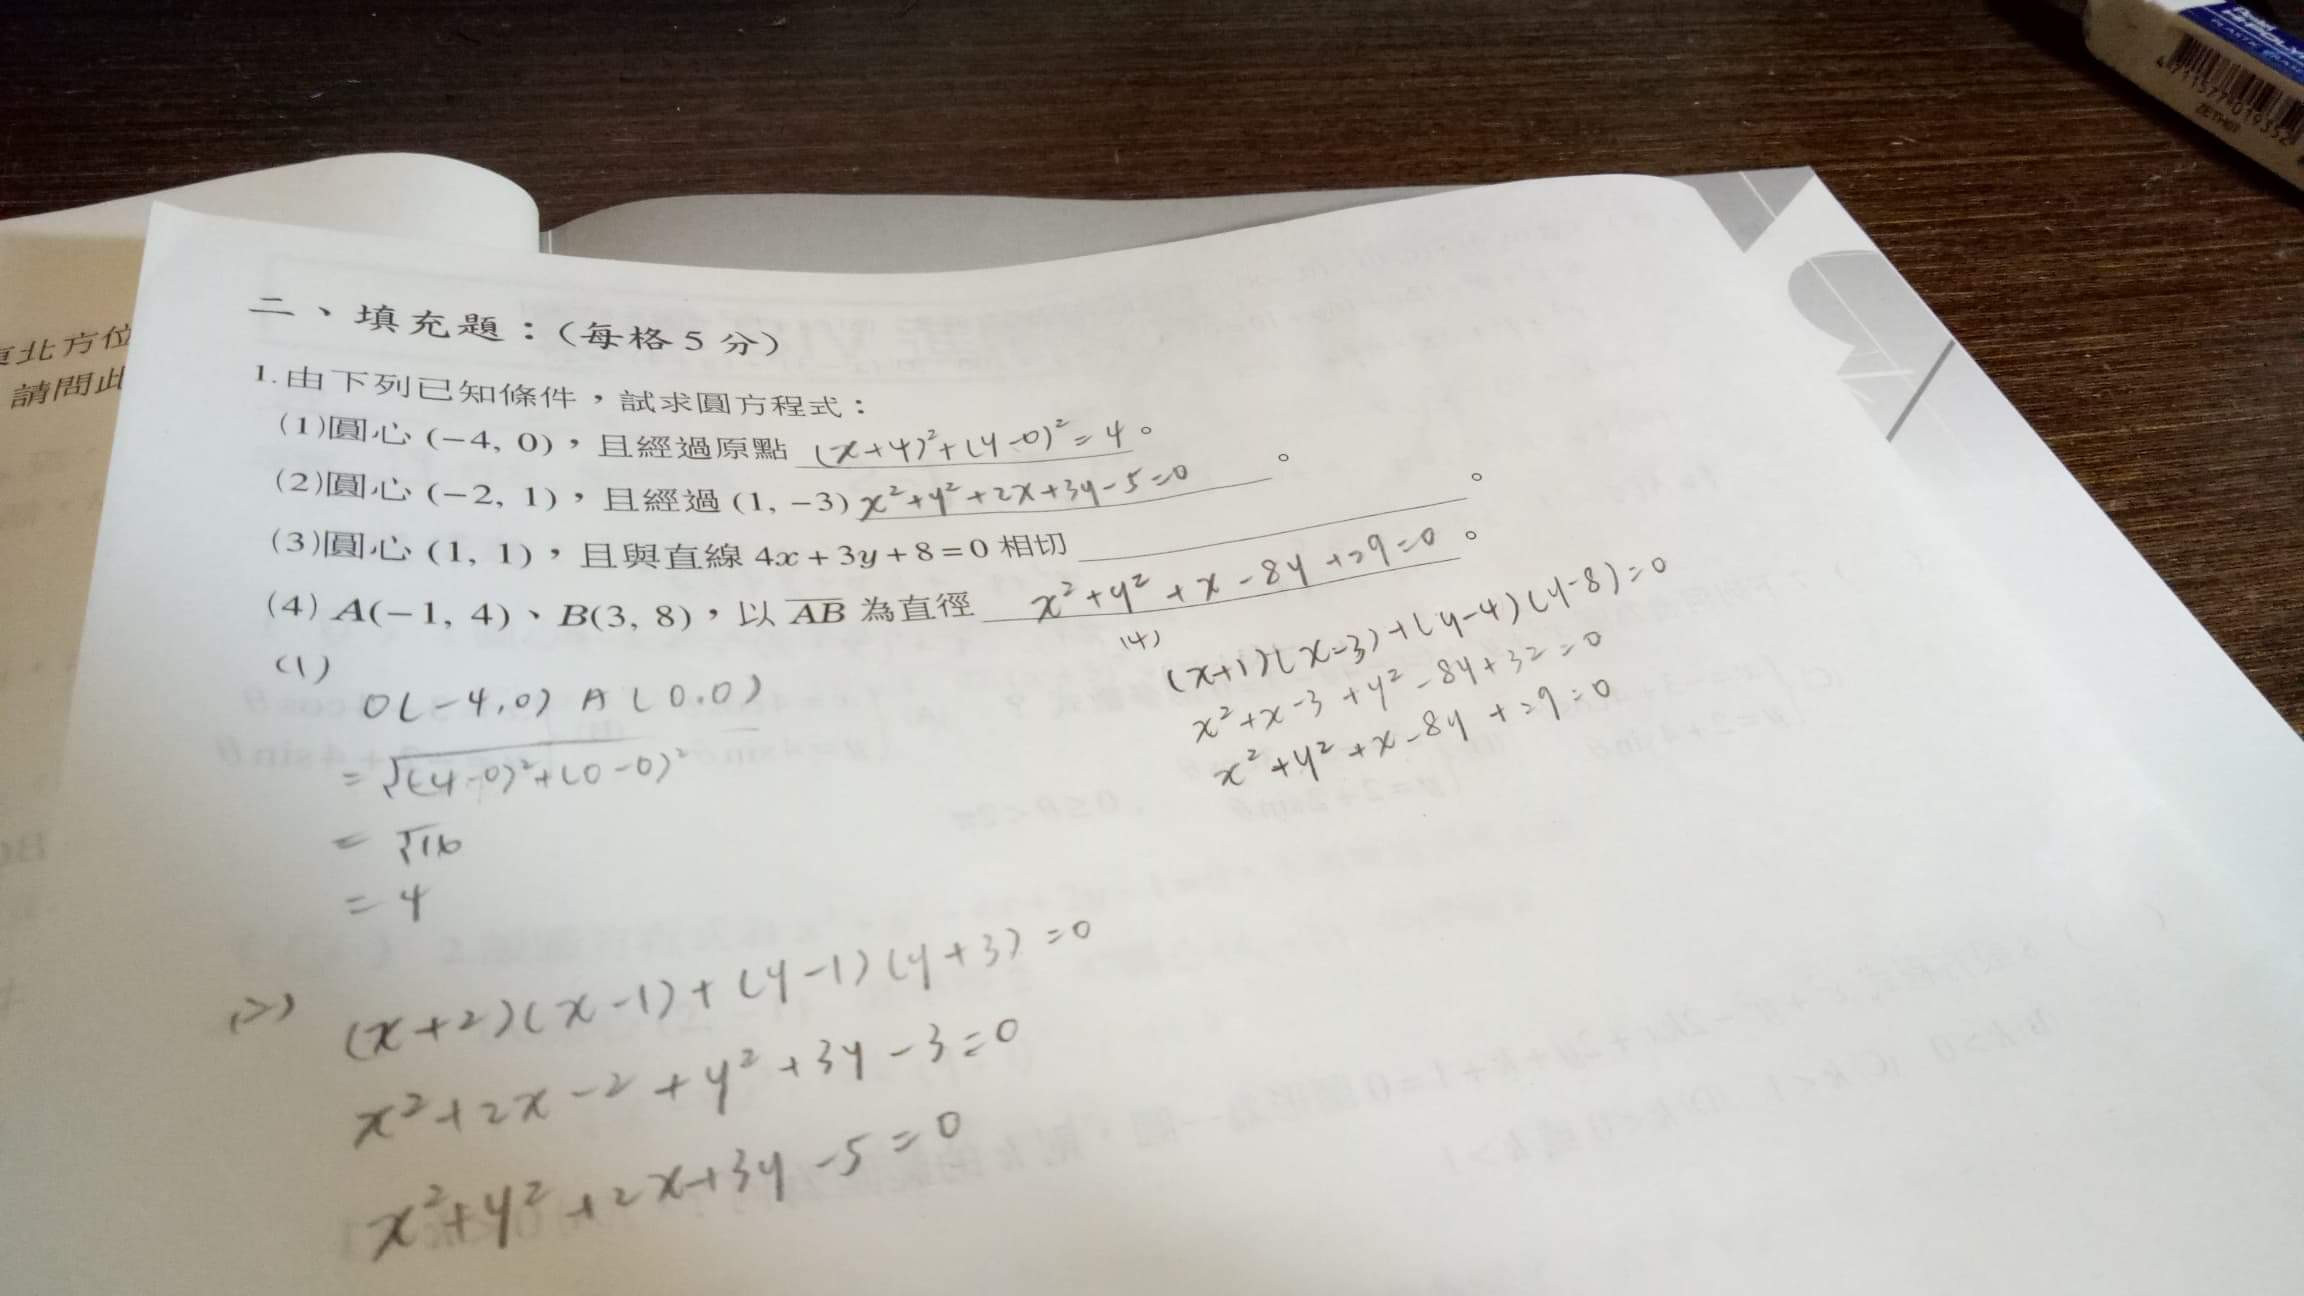 二、填充題：(每格5分)
1.由下列已知條件，試求圓方程式：
(1)圓心(−4, 0)，且經過原點 (x+4)²+(y-0)²=4。
(2)圓心(−2, 1)，且經過(1, −3) x²+y²+2x+3y-5=0。
(3)圓心(1, 1)，且與直線4x+3y+8=0相切。
(4) A(−1, 4)、B(3, 8)，以 \overline{AB} 為直徑 x²+y²+x-8y+29=0。
(1)
O(-4,0) A(0.0)
=√(-4-0)²+(0-0)²
=√16
=4
(2)
(x+2)(x-1)+(y-1)(y+3)=0
x²+2x-2+y²+3y-3=0
x²+y²+2x+3y-5=0
(4)
(x+1)(x-3)+(y-4)(y-8)=0
x²+x-3+y²-8y+32=0
x²+y²+x-8y+29=0
北方位
請問此
PLASTIC ERAS